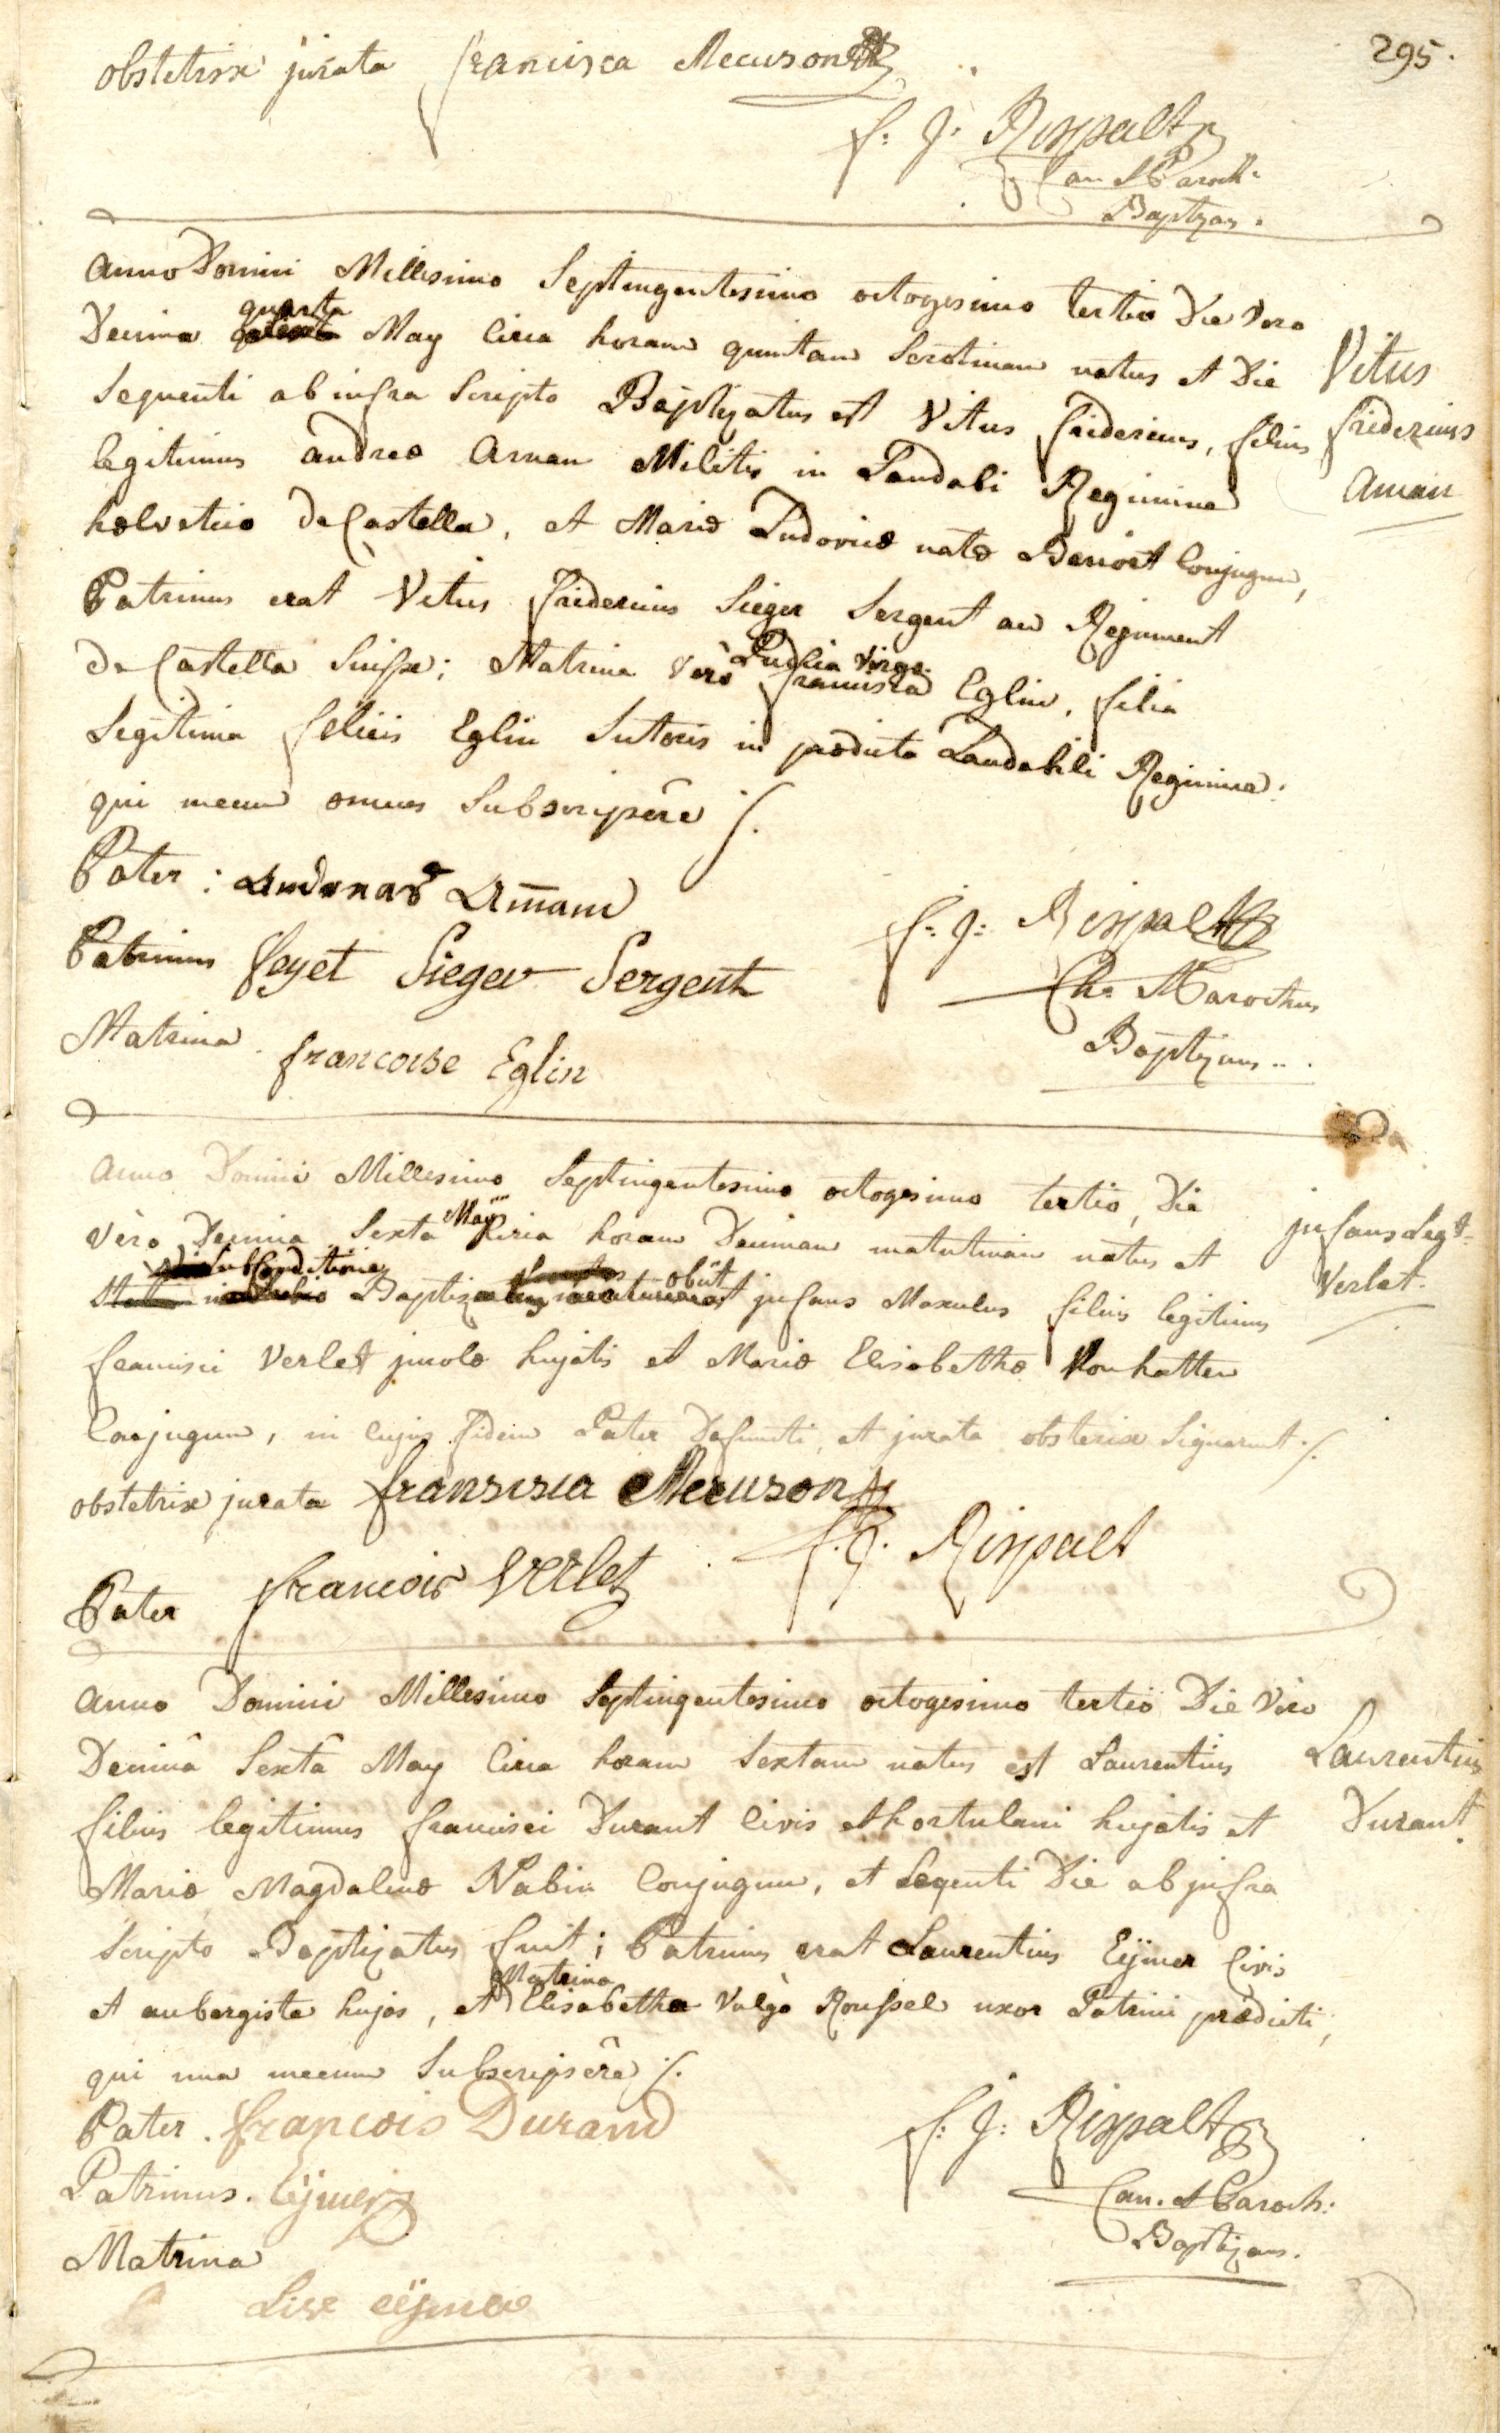 295.
obstetrix jurata francisca Mecuson
f: J: Rispalt
Can. et Paroch:
Baptizans.
Anno Domini Millesimo Septingentesimo octogesimo tertio Die Vero
Decima quarta May Circa horam quintam Serotinam natus et Die
Sequenti ab infra Scripto Baptizatus est Vitus fridericus, filius
legitimus andreæ Aman Militis in Laudabi Regimine
helvetico De Castella, et Mariæ Ludovicæ natæ Benoit Conjugum,
Patrinus erat Vitus fridericus Sieger Sergent au Regiment
De Castella Suisse; Matrina Verò Pudica Virgo francisca Eglin, filia
Legitima felicis Eglin Sutoris in prædicto Laudabili Regimine:
qui mecum omnes Subscripsêre /.
Vitus
fridericus
Aman
Pater: Andreas Amann
Patrinus feyet Sieger Sergent
Matrina francoise Eglin
f: J: Rispalt
Can. et Parochus
Baptizans..
Anno Domini Millesimo Septingentesimo octogesimo tertio, Die
Vèro Decima Sexta May Circa horam Decimam matutinam natus et
Sub Conditione Baptizatus obiit jnfans Masculus filius legitimus
francisci Verlet jncolæ hujatis et Mariæ Elisabethæ Vonhatten
Conjugum, in Cujus fidem Pater Defuncti, et jurata obsterix Signarunt /.
jnfans Legt.
Verlet.
obstetrix jurata fransisca Mecuson
f. J. Rispalt
Pater francois Verlet
Anno Domini Millesimo Septingentesimo octogesimo tertio Die Vero
Decimâ Sexta May Circa horam Sextam natus est Laurentius
filius legitimus francisci Durant Civis et hortulani hujatis et
Mariæ Magdalenæ Nabin Conjugum, et Seqenti Die ab jnfra
Scripto Baptizatus fuit; Patrinus erat Laurentius Eÿmer Civis
et aubergiste hujas, et Matrina Elisabetha Vulgò Roussel uxor Patrini prædicti,
qui una mecum Subscripsêre /.
Laurentius
Durant.
Pater. françois Durand
Patrinus. Eÿmer
Matrina
Lise eÿmer
f: J: Rispalt
Can. et Paroch:
Baptizans.